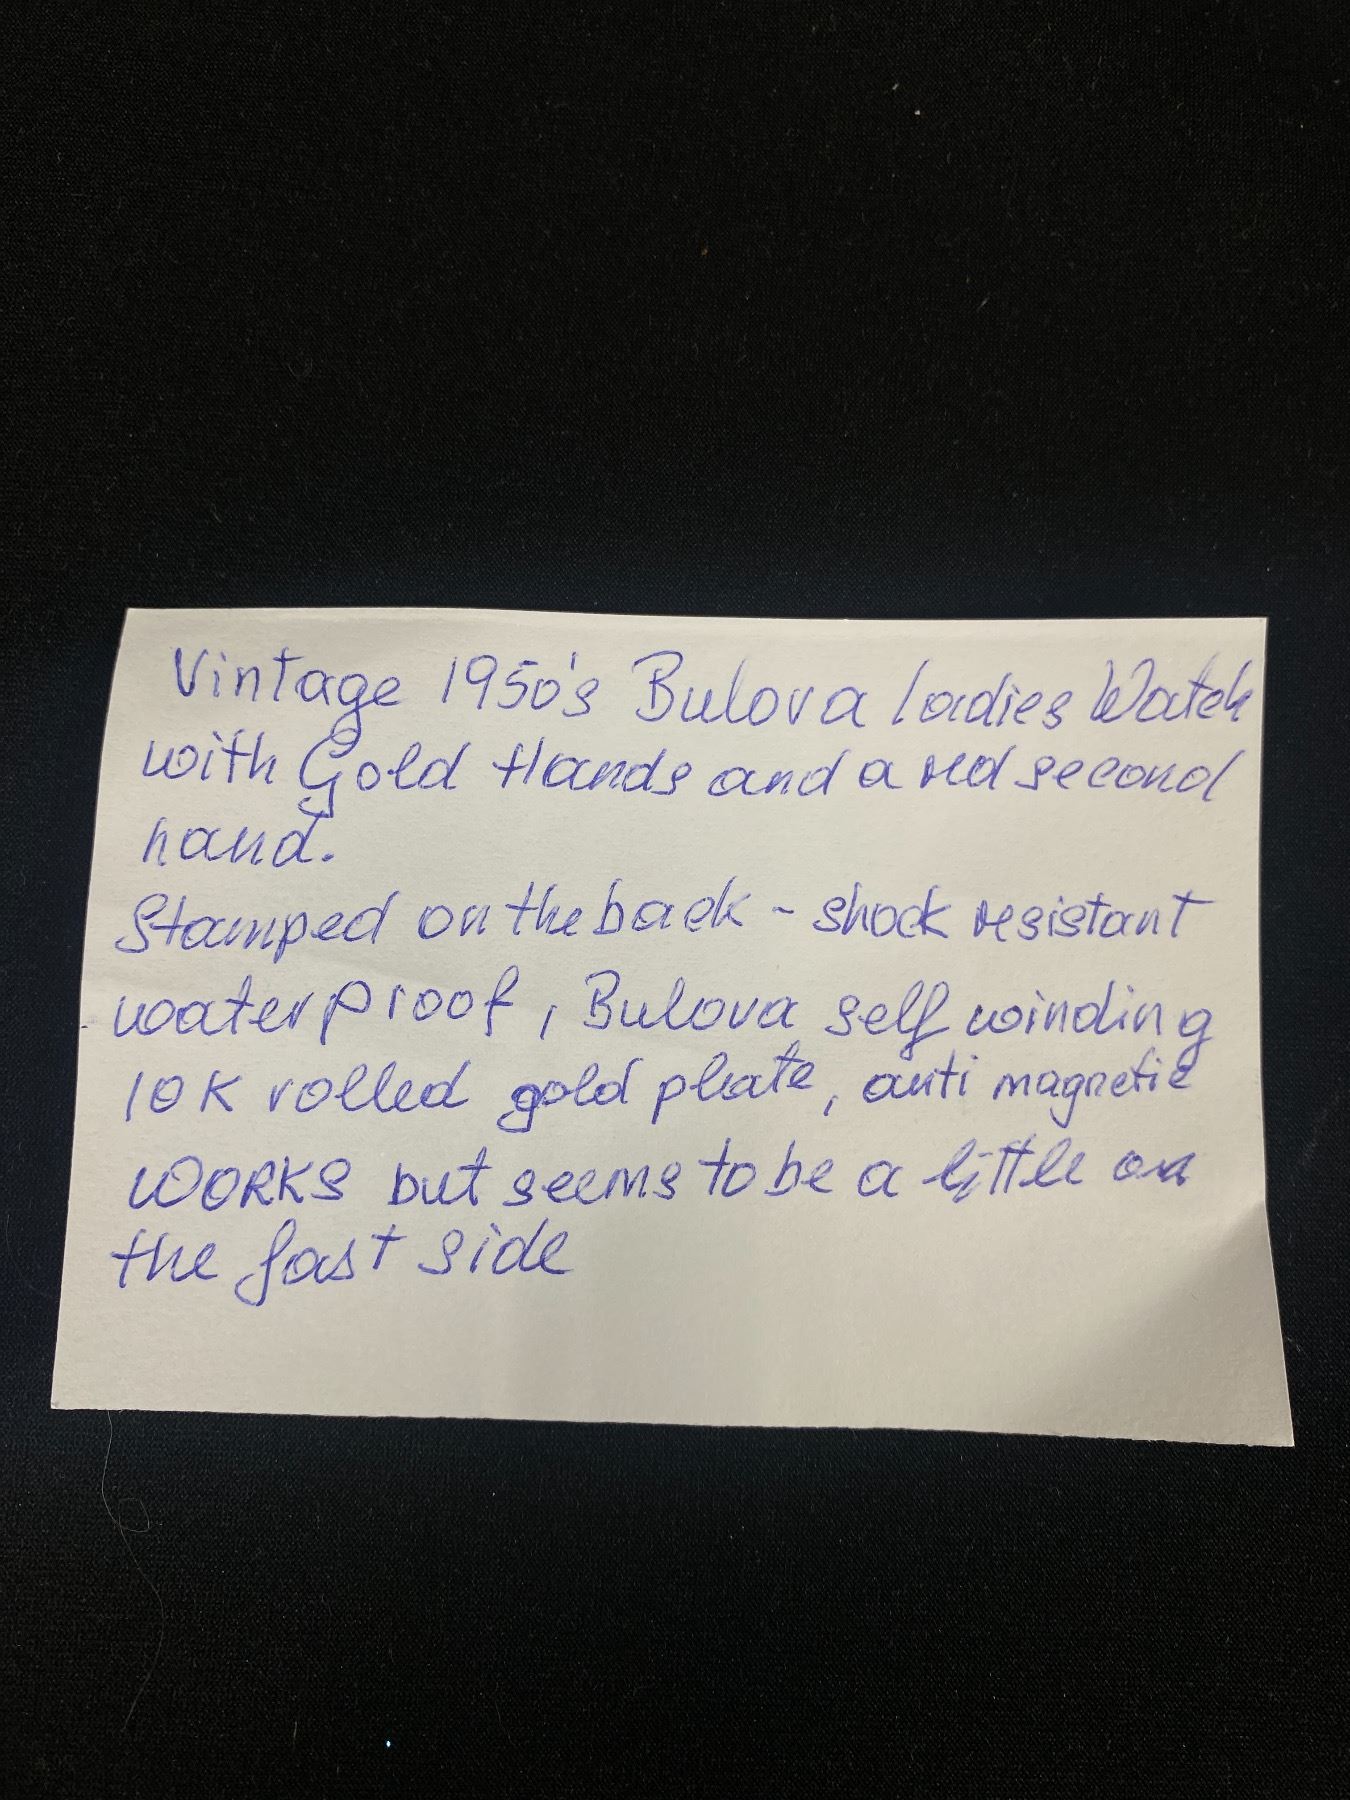 Vintage 1950's Bulova ladies Watch
with Gold Hands and a red second
hand.
Stamped on the back - shock resistant
waterproof, Bulova self winding
10K rolled gold plate, anti magnetic
WORKS but seems to be a little on
the fast side